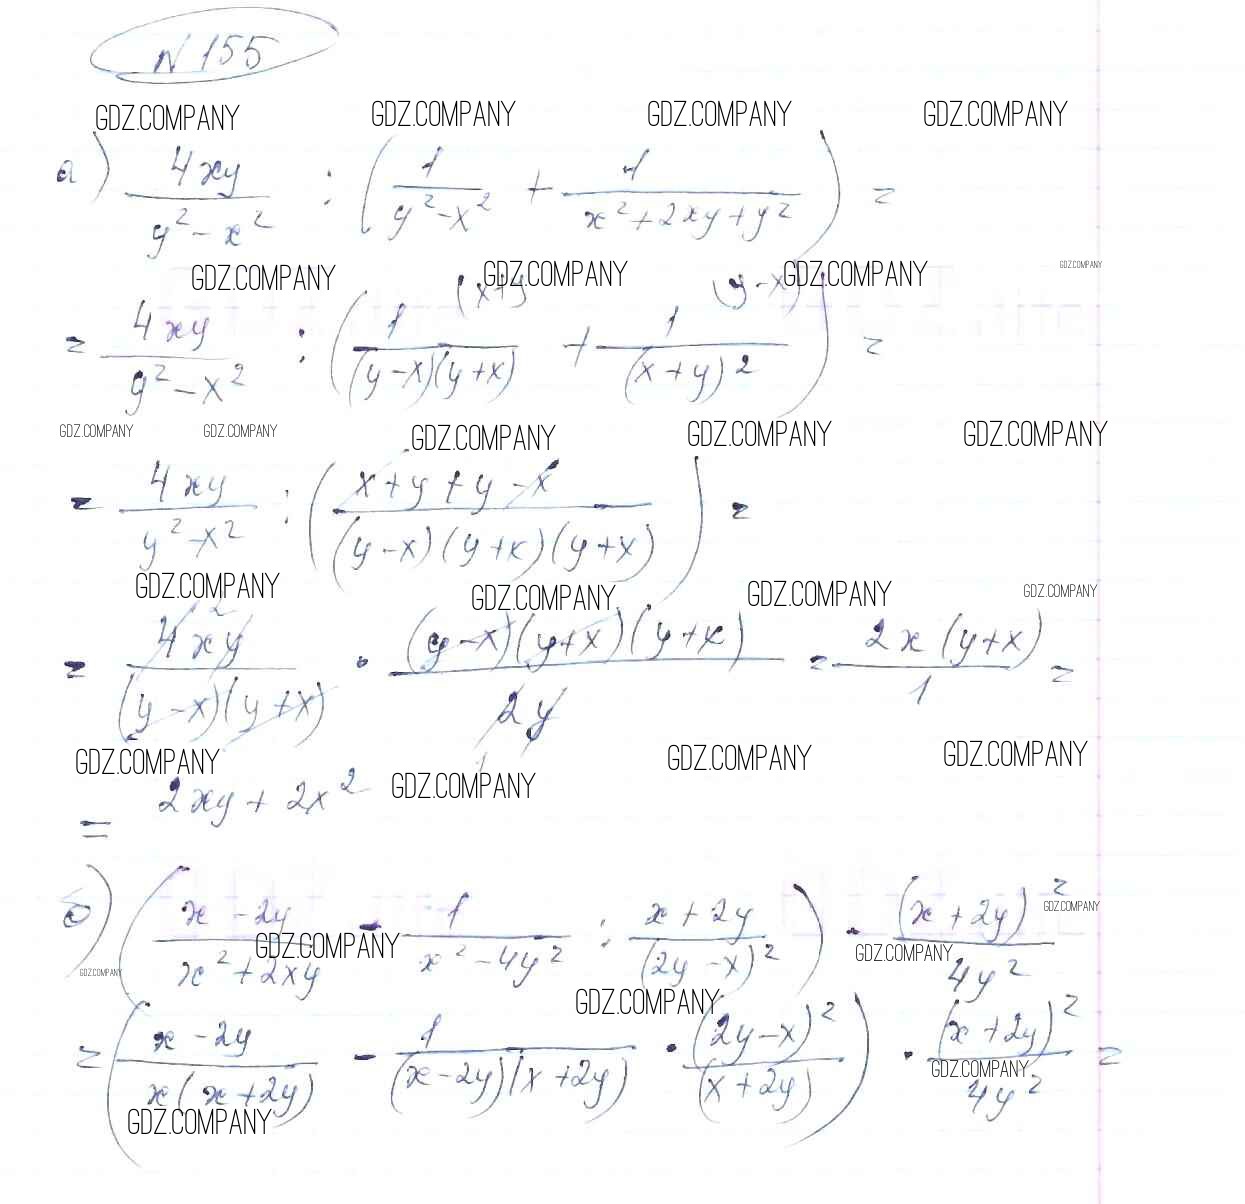 N 155
GDZ.COMPANY GDZ.COMPANY GDZ.COMPANY GDZ.COMPANY
а) 4xy/(y²-x²) : (1/(y²-x²) + 1/(x²+2xy+y²)) =
GDZ.COMPANY GDZ.COMPANY GDZ.COMPANY GDZ.COMPANY
(x+y (y-x)
= 4xy/(y²-x²) : (1/((y-x)(y+x)) + 1/(x+y)²) =
GDZ.COMPANY GDZ.COMPANY GDZ.COMPANY GDZ.COMPANY GDZ.COMPANY
= 4xy/(y²-x²) : ((x+y+y-x)/((y-x)(y+x)(y+x))) =
GDZ.COMPANY GDZ.COMPANY GDZ.COMPANY GDZ.COMPANY
2
= 4xy/((y-x)(y+x)) · ((y-x)(y+x)(y+x))/(2y) = (2x(y+x))/1 =
1
GDZ.COMPANY GDZ.COMPANY GDZ.COMPANY GDZ.COMPANY
= 2xy + 2x²
б) ((x-2y)/(x²+2xy) - 1/(x²-4y²) : (x+2y)/(2y-x)²) · (x+2y)²/(4y²)
GDZ.COMPANY GDZ.COMPANY GDZ.COMPANY GDZ.COMPANY
GDZ.COMPANY
= ((x-2y)/(x(x+2y)) - 1/((x-2y)(x+2y)) · (2y-x)²/(x+2y)) · (x+2y)²/(4y²) =
GDZ.COMPANY GDZ.COMPANY